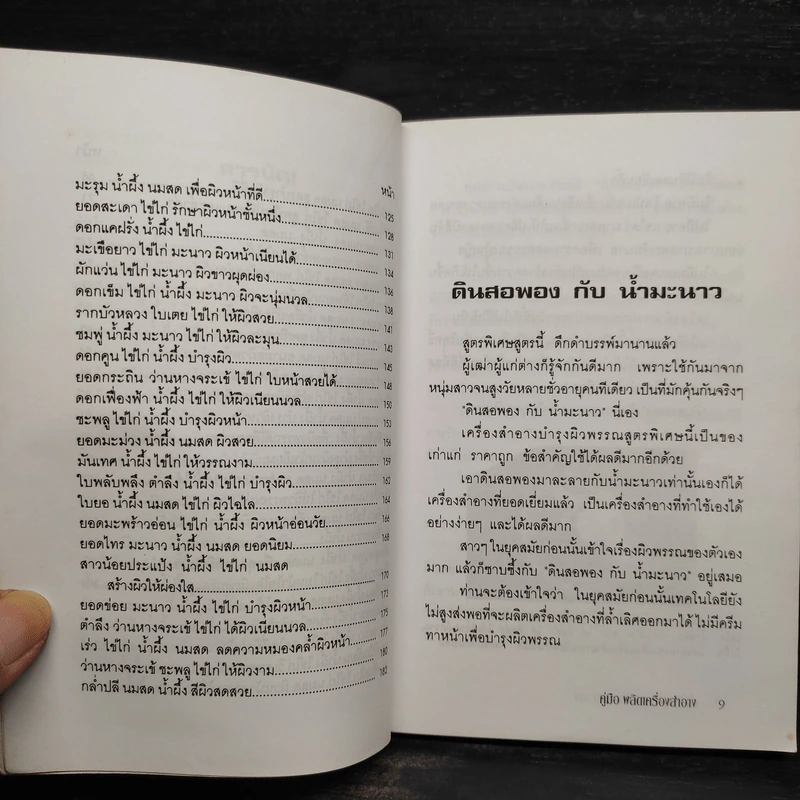 หน้า
มะรุม น้ำผึ้ง นมสด เพื่อผิวหน้าที่ดี 125
ยอดสะเดา ไข่ไก่ รักษาผิวหน้าชั้นหนึ่ง 128
ดอกแคฝรั่ง น้ำผึ้ง ไข่ไก่ 131
มะเขือยาว ไข่ไก่ มะนาว ผิวหน้าเนียนได้ 134
ผักแว่น ไข่ไก่ มะนาว ผิวขาวผุดผ่อง 136
ดอกเข็ม ไข่ไก่ น้ำผึ้ง มะนาว ผิวจะนุ่มนวล 138
รากบัวหลวง ใบเตย ไข่ไก่ ให้ผิวสวย 141
ชมพู่ น้ำผึ้ง มะนาว ไข่ไก่ ให้ผิวละมุน 143
ดอกคูน ไข่ไก่ น้ำผึ้ง บำรุงผิว 145
ยอดกระถิน ว่านหางจระเข้ ไข่ไก่ ใบหน้าสวยได้ 148
ดอกเฟื่องฟ้า น้ำผึ้ง ไข่ไก่ ให้ผิวเนียนนวล 150
ชะพลู ไข่ไก่ น้ำผึ้ง บำรุงผิวหน้า 153
ยอดมะม่วง น้ำผึ้ง นมสด ผิวสวย 156
มันเทศ น้ำผึ้ง ไข่ไก่ ให้วรรณงาม 159
ใบพลับพลึง ตำลึง น้ำผึ้ง ไข่ไก่ บำรุงผิว 162
ใบยอ น้ำผึ้ง นมสด ไข่ไก่ ผิวไฉไล 164
ยอดมะพร้าวอ่อน ไข่ไก่ น้ำผึ้ง ผิวหน้าอ่อนวัย 166
ยอดไทร มะนาว น้ำผึ้ง นมสด ยอดนิยม 168
สาวน้อยประแป้ง น้ำผึ้ง ไข่ไก่ นมสด
สร้างผิวให้ผ่องใส 170
ยอดข่อย มะนาว น้ำผึ้ง ไข่ไก่ บำรุงผิวหน้า 173
ตำลึง ว่านหางจระเข้ ไข่ไก่ ได้ผิวเนียนนวล 175
เร่ว ไข่ไก่ น้ำผึ้ง นมสด ลดความหมองคล้ำผิวหน้า 177
ว่านหางจระเข้ ชะพลู ไข่ไก่ ให้ผิวงาม 180
กล่ำปลี นมสด น้ำผึ้ง สีผิวสดสวย 182
ดินสอพอง กับ น้ำมะนาว
สูตรพิเศษสูตรนี้ ดึกดำบรรพ์มานานแล้ว
ผู้เฒ่าผู้แก่ต่างก็รู้จักกันดีมาก เพราะใช้กันมาจาก
หนุ่มสาวจนสูงวัยหลายชั่วอายุคนทีเดียว เป็นที่มักคุ้นกันจริงๆ
"ดินสอพอง กับ น้ำมะนาว" นี่เอง
เครื่องสำอางบำรุงผิวพรรณสูตรพิเศษนี้เป็นของ
เก่าแก่ ราคาถูก ข้อสำคัญใช้ได้ผลดีมากอีกด้วย
เอาดินสอพองมาละลายกับน้ำมะนาวเท่านั้นเองก็ได้
เครื่องสำอางที่ยอดเยี่ยมแล้ว เป็นเครื่องสำอางที่ทำใช้เองได้
อย่างง่ายๆ และได้ผลดีมาก
สาวๆ ในยุคสมัยก่อนนั้นเข้าใจเรื่องผิวพรรณของตัวเอง
มาก แล้วก็ซาบซึ้งกับ "ดินสอพอง กับ น้ำมะนาว" อยู่เสมอ
ท่านจะต้องเข้าใจว่า ในยุคสมัยก่อนนั้นเทคโนโลยียัง
ไม่สูงส่งพอที่จะผลิตเครื่องสำอางที่ล้ำเลิศออกมาได้ ไม่มีครีม
ทาหน้าเพื่อบำรุงผิวพรรณ
คู่มือ ผลิตเครื่องสำอาง 9